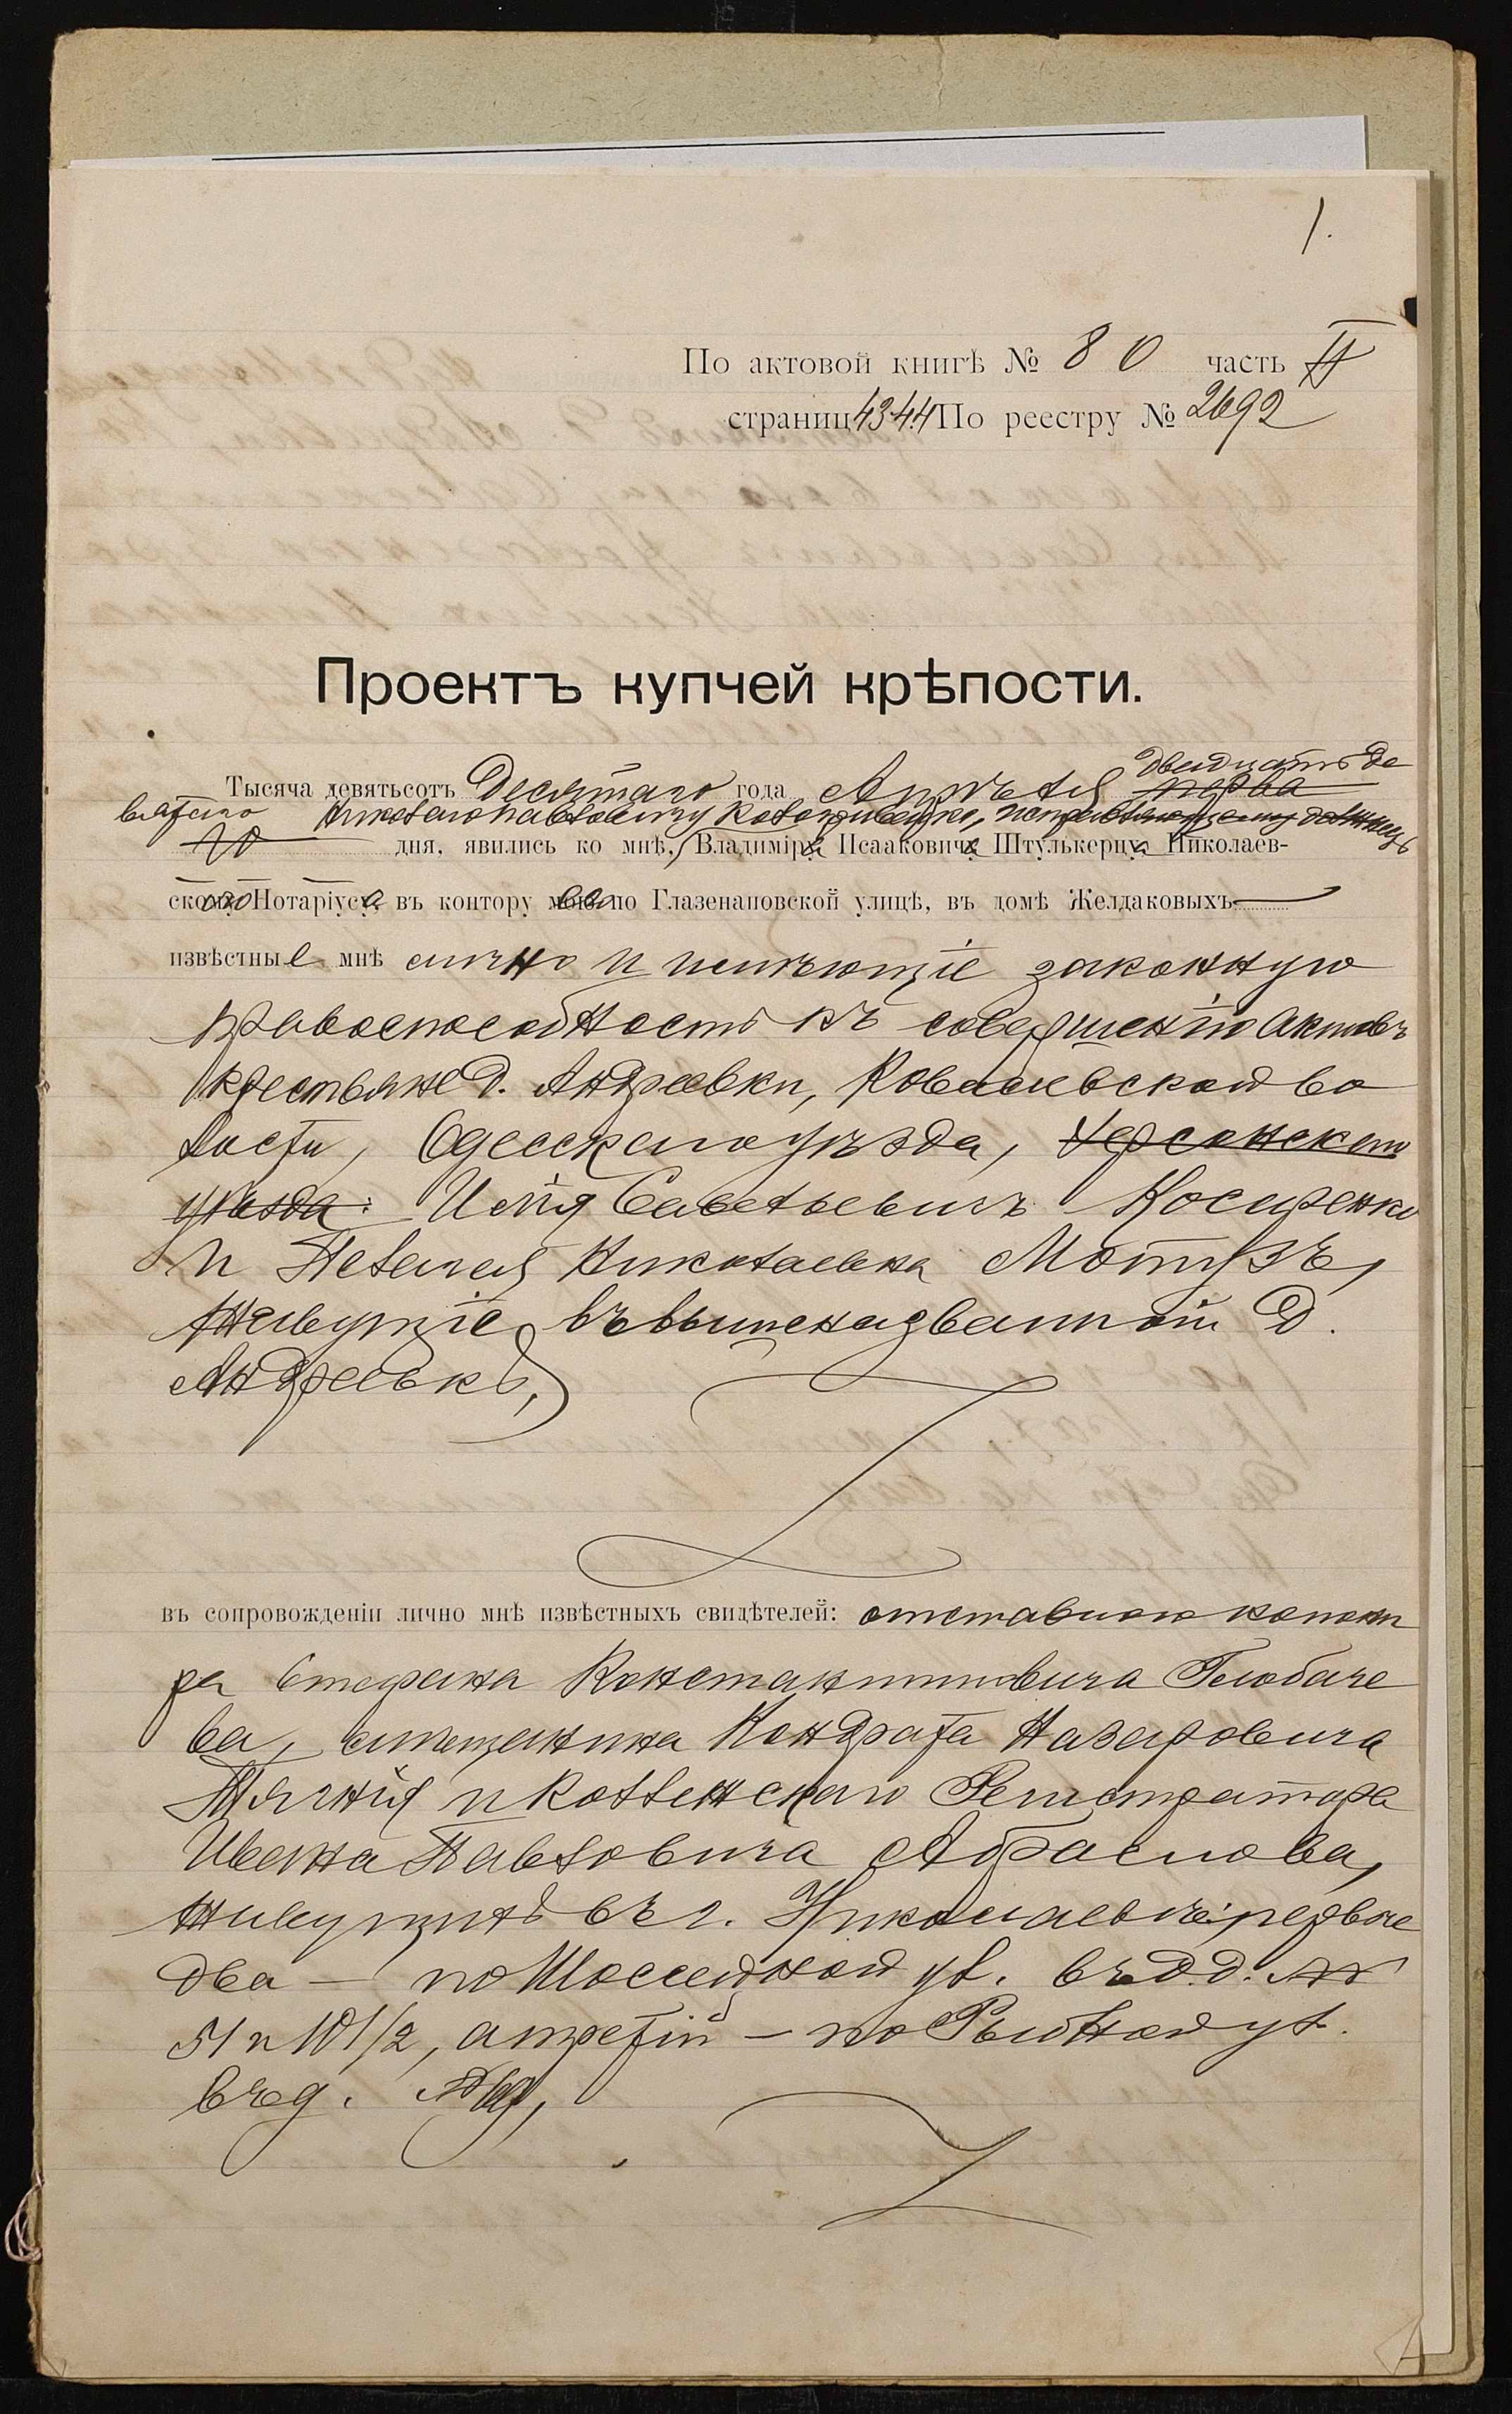 1.
По актовой книгѣ № 80 часть II
страниц 4344 По реестру № 2692
Проектъ купчей крѣпости.
двадцать де
Тысяча девятьсотъ Десятаго года Апрѣля перва
вятаго Николаю Павловичу исправляющему должность
го дня, явились ко мнѣ, Владиміру Исааковичу Штулькерцу, Николаев-
скому Нотаріусу, въ контору его по Глазенаповской улицѣ, въ домѣ Желдаковыхъ
извѣстные мнѣ лично и имѣющіе законную
правоспособность къ совершенію актовъ
крестьяне д. Андреевки, Ковалевской во
лости, Одесскаго уѣзда, Херсонскаго
уѣзда: Илія Савельевичъ Косиренко
и Пелагея Николаевна Мотузъ,
живущіе въ вышеназванной д.
Андреевкѣ,
въ сопровожденіи лично мнѣ извѣстныхъ свидѣтелей: отставного
ра Стефана Константиновича Глобаче
ва, мѣщанина Кондрата Назаровича
и Коллежскаго Регистратора
Ивана Павловича Абрамова,
живущихъ въ г. Николаевѣ: первые
два — по Шоссейной ул. въ д.д. №№
51 и 101/2, а третій — по Рыбной ул.
въ д. №